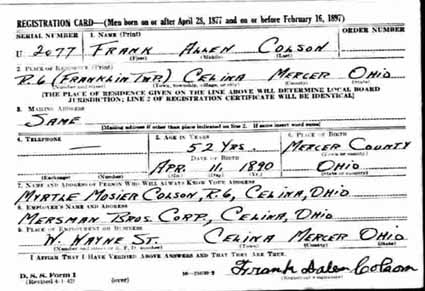 REGISTRATION CARD—(Men born on or after April 28, 1877 and on or before February 16, 1897)
SERIAL NUMBER 1. NAME (Print) ORDER NUMBER
U 2077 FRANK ALLEN COLSON
(First) (Middle) (Last)
2. PLACE OF RESIDENCE (Print)
R.6 (FRANKLIN TWP.) CELINA MERCER OHIO
(Number and street) (Town, township, village, or city) (County) (State)
[THE PLACE OF RESIDENCE GIVEN ON THE LINE ABOVE WILL DETERMINE LOCAL BOARD
JURISDICTION; LINE 2 OF REGISTRATION CERTIFICATE WILL BE IDENTICAL]
3. MAILING ADDRESS
SAME
[Mailing address if other than place indicated on line 2. If same insert word same]
4. TELEPHONE 5. AGE IN YEARS 6. PLACE OF BIRTH
— 52 YRS. MERCER COUNTY
DATE OF BIRTH (Town or county)
APR. 11, 1890 OHIO
(Exchange) (Number) (Mo.) (Day) (Yr.) (State or country)
7. NAME AND ADDRESS OF PERSON WHO WILL ALWAYS KNOW YOUR ADDRESS
MYRTLE MOSIER COLSON, R.6, CELINA, OHIO
8. EMPLOYER'S NAME AND ADDRESS
MERSMAN BROS. CORP., CELINA, OHIO
9. PLACE OF EMPLOYMENT OR BUSINESS
W. WAYNE ST. CELINA MERCER OHIO
(Number and street or R. F. D. number) (Town) (County) (State)
I AFFIRM THAT I HAVE VERIFIED ABOVE ANSWERS AND THAT THEY ARE TRUE.
D. S. S. Form 1
(Revised 4-1-42) (over) Frank Colson